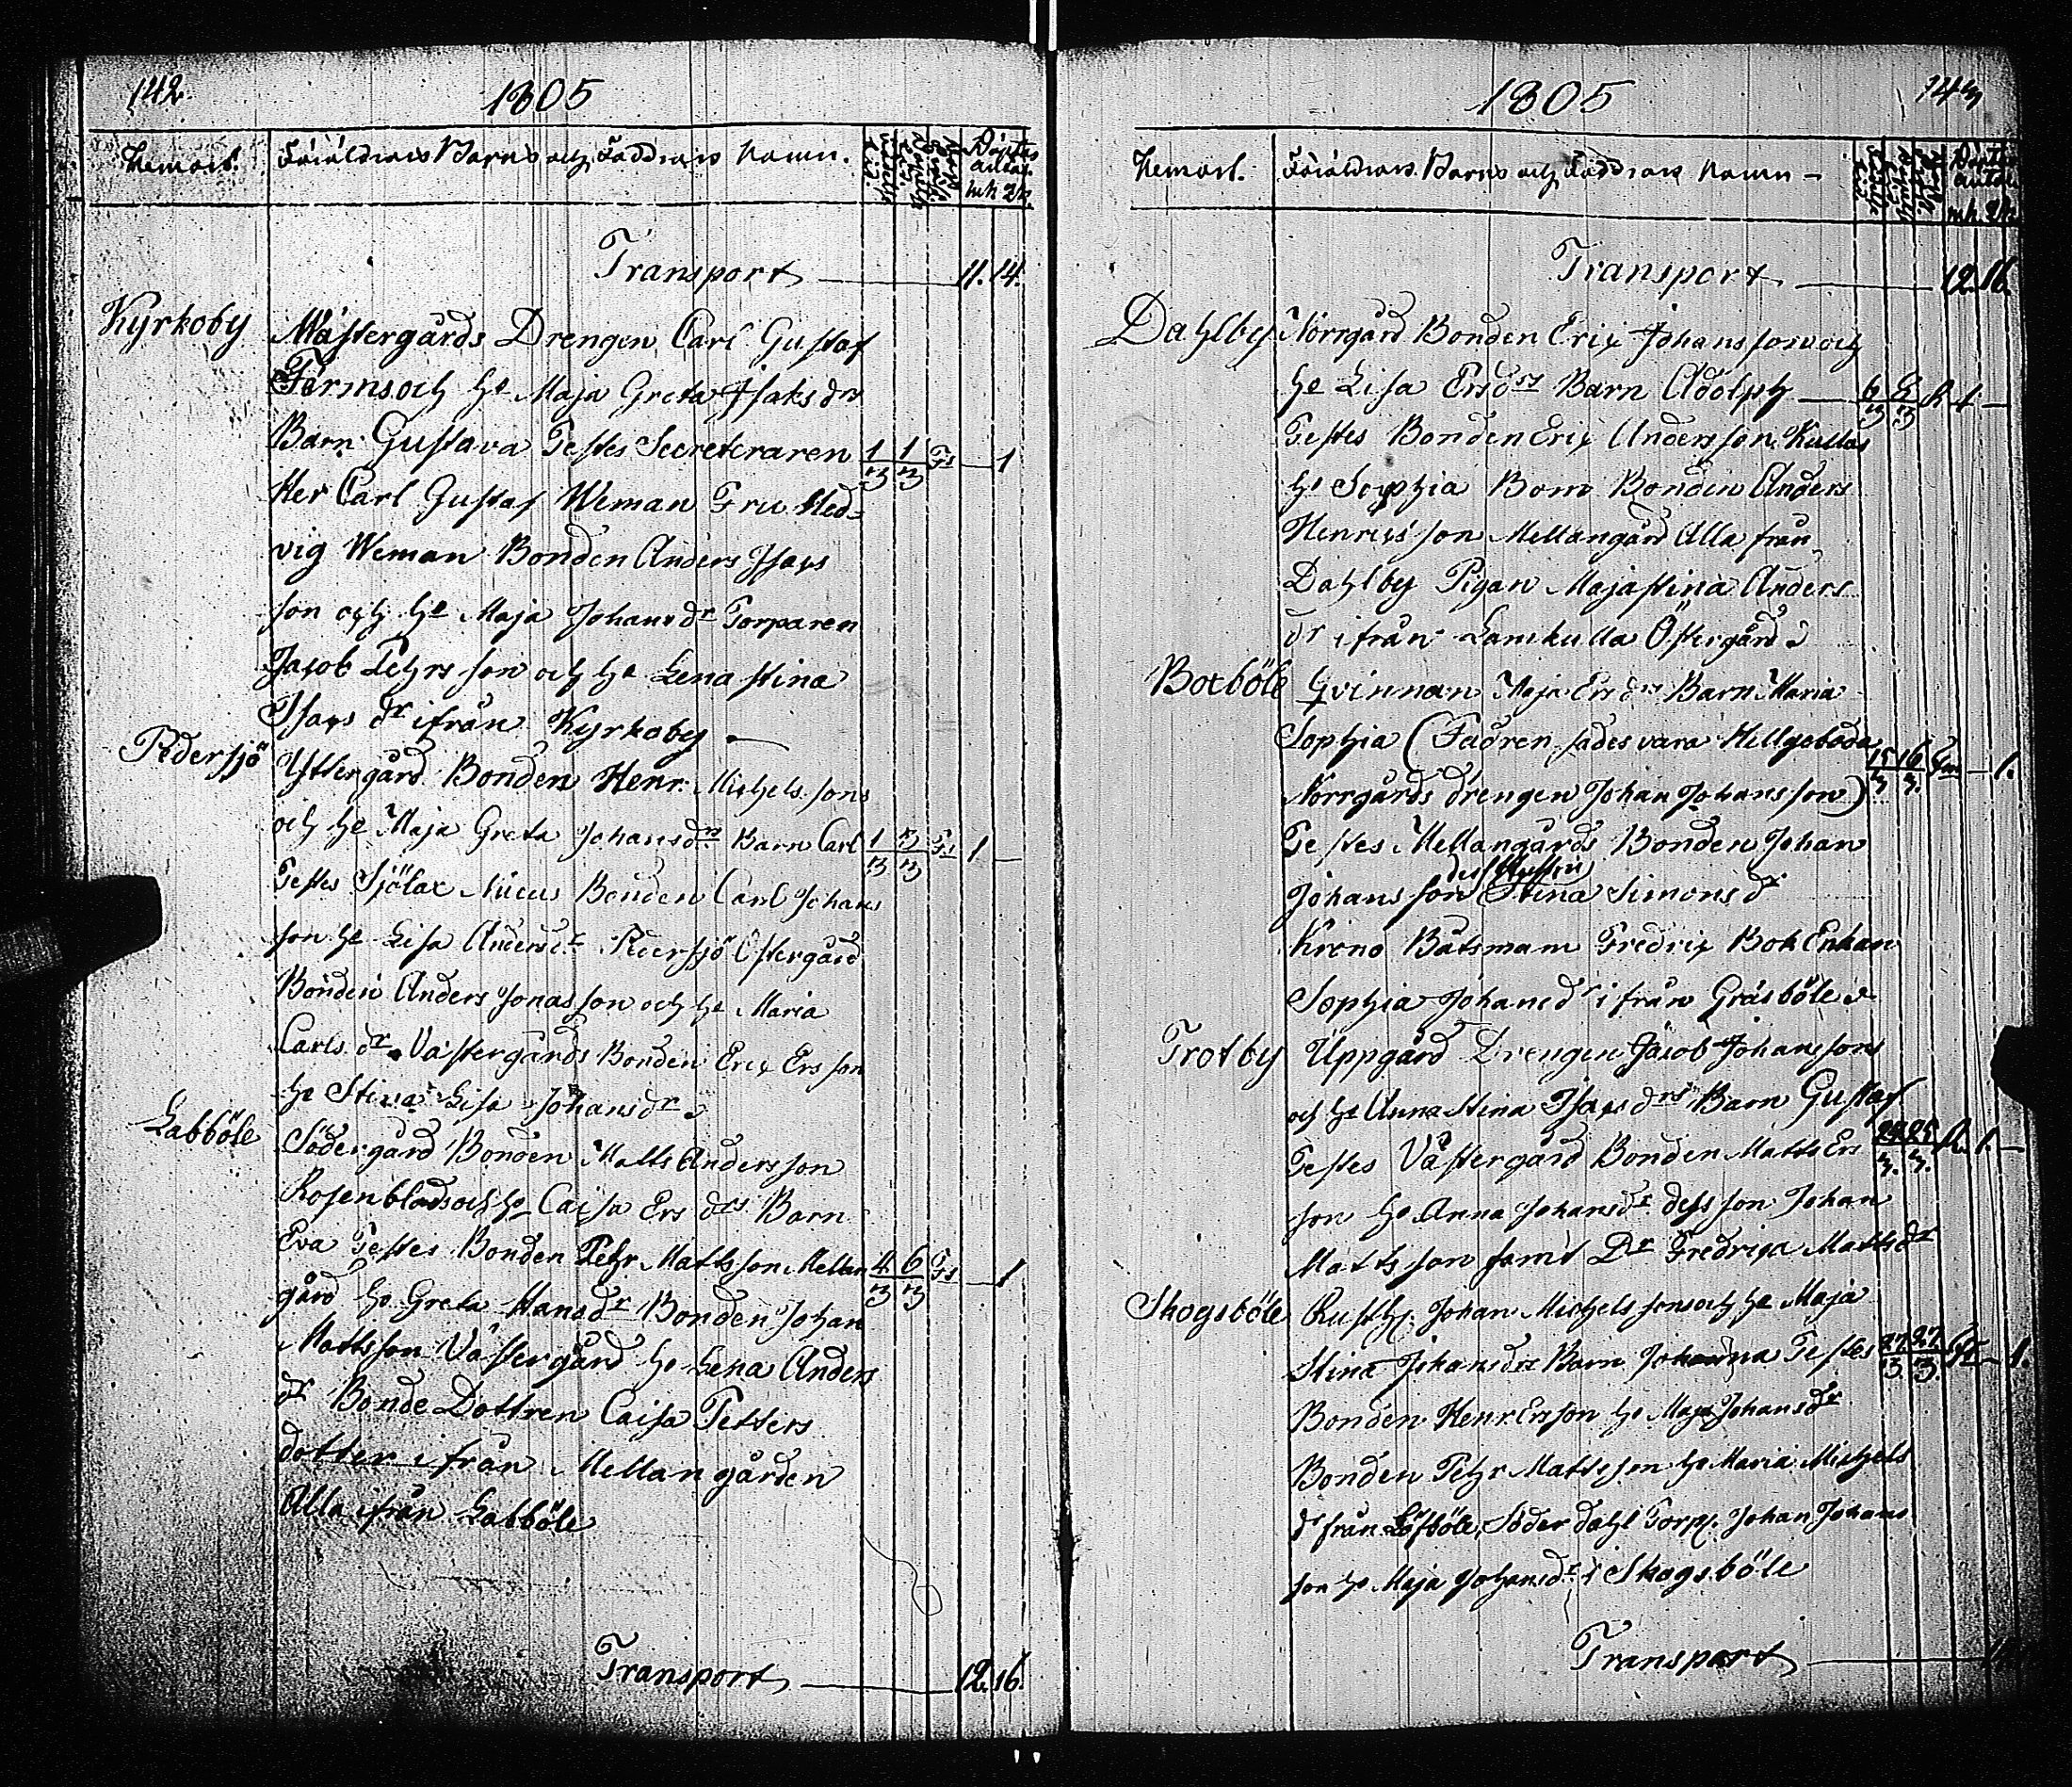 142.
1805
Hemort.
Föräldrars Barns och Faddrars Namn.
mk qk.
Transport 11. 14.
Kyrkoby
Wästergårds Drengen Carl Gustaf
och he Maja Greta Isaks drs
Barn Gustava Testes Secreteraren 1/3 1/3 1
Her Carl Gustaf Weman Fru Hed=
vig Weman Bonden Anders Isacs
son och he Maja Johans dr Torparen
Jacob Pehrs son och he Lena Stina
Isacs dr ifrån Kyrkoby
Pedersjö
Yttergård Bonden Henr: Michels sons
och he Maja Greta Johansdrs Barn Carl 1/3 3/3 1
Testes Sjölax Bonden Carl Johans
son he Lisa Andersdr Pedersjö Östergård
Bonden Anders Jonas son och he Maria
Carls dr Västergårds Bonden Eric Ers son
he Stina Lisa Johans dr
Labböle
Södergård Bonden Matts Anders son
Rosenblads och he Caisa Ers drs Barn
Eva Testes Bonden Pehr Matts son Mellan 4/3 6/3 1
gård he Greta Hansdr Bonden Johan
Mattsson Västergård he Lena Anders
dr Bonde Dottren Caisa Petters
dotter ifrån Mellangården
Alla ifrån Labböle
Transport 12. 16.
1805
143
Hemort.
Föräldrars Barns och Faddrars Namn
mk. qk.
Transport 12. 16.
Dahlby
Norrgård Bonden Eric Johans sons och
he Lisa Ersdrs Barn Adolph 6/3 8/3 1
Testes Bonden Eric Anders son Kullas
he Sophia Bom Bonden Anders
Henrics son Mellangård Alla från
Dahlby Pigan Maja Stina Anders
dr ifrån Lamkulla Östergård
Botböle
Qvinnan Maja Ers drs Barn Maria
Sophia (Fadren sades vara Hellgeboda 15/3 16/3 1.
Norrgårds drengen Johan Johans son)
Testes Mellangårds Bonden Johan
Johans son Stina Simons dr
Krono Båtsmann Fredric Bok Enkan
Sophia Johans dr ifrån Gräsböle
Trotby
Uppgård Drengen Jacob Johans sons
och he Anna Stina Isacs drs Barn Gustaf
Testes Västergård Bonden Matts Ers 24/3 25/3 1.
son he Anna Johansdr dess son Johan
Matts son samt Dr Fredrica Matts dr
Skogsböle
Rusth: Johan Michels sons och he Maja
Stina Johans drs Barn Johanna Testes 27/3 27/3 1.
Bonden Henr Ersson he Maja Johansdr
Bonden Pehr Matts son he Maria Michels
dr från Löfböle, Söder dahl Torp: Johan Johans
son he Maja Johansdr i Skogsböle
Transport